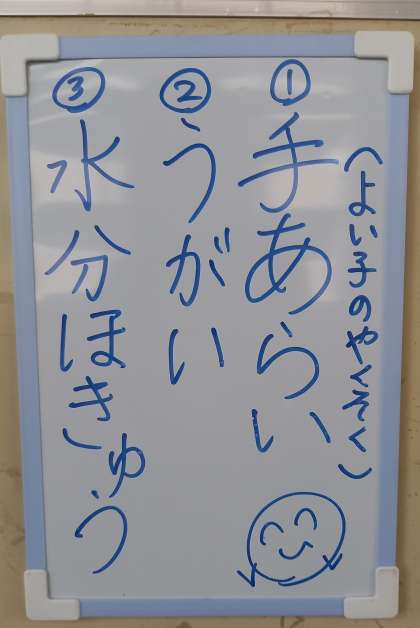 (よい子のやくそく)
①手あらい
②うがい
③水分ほきゅう